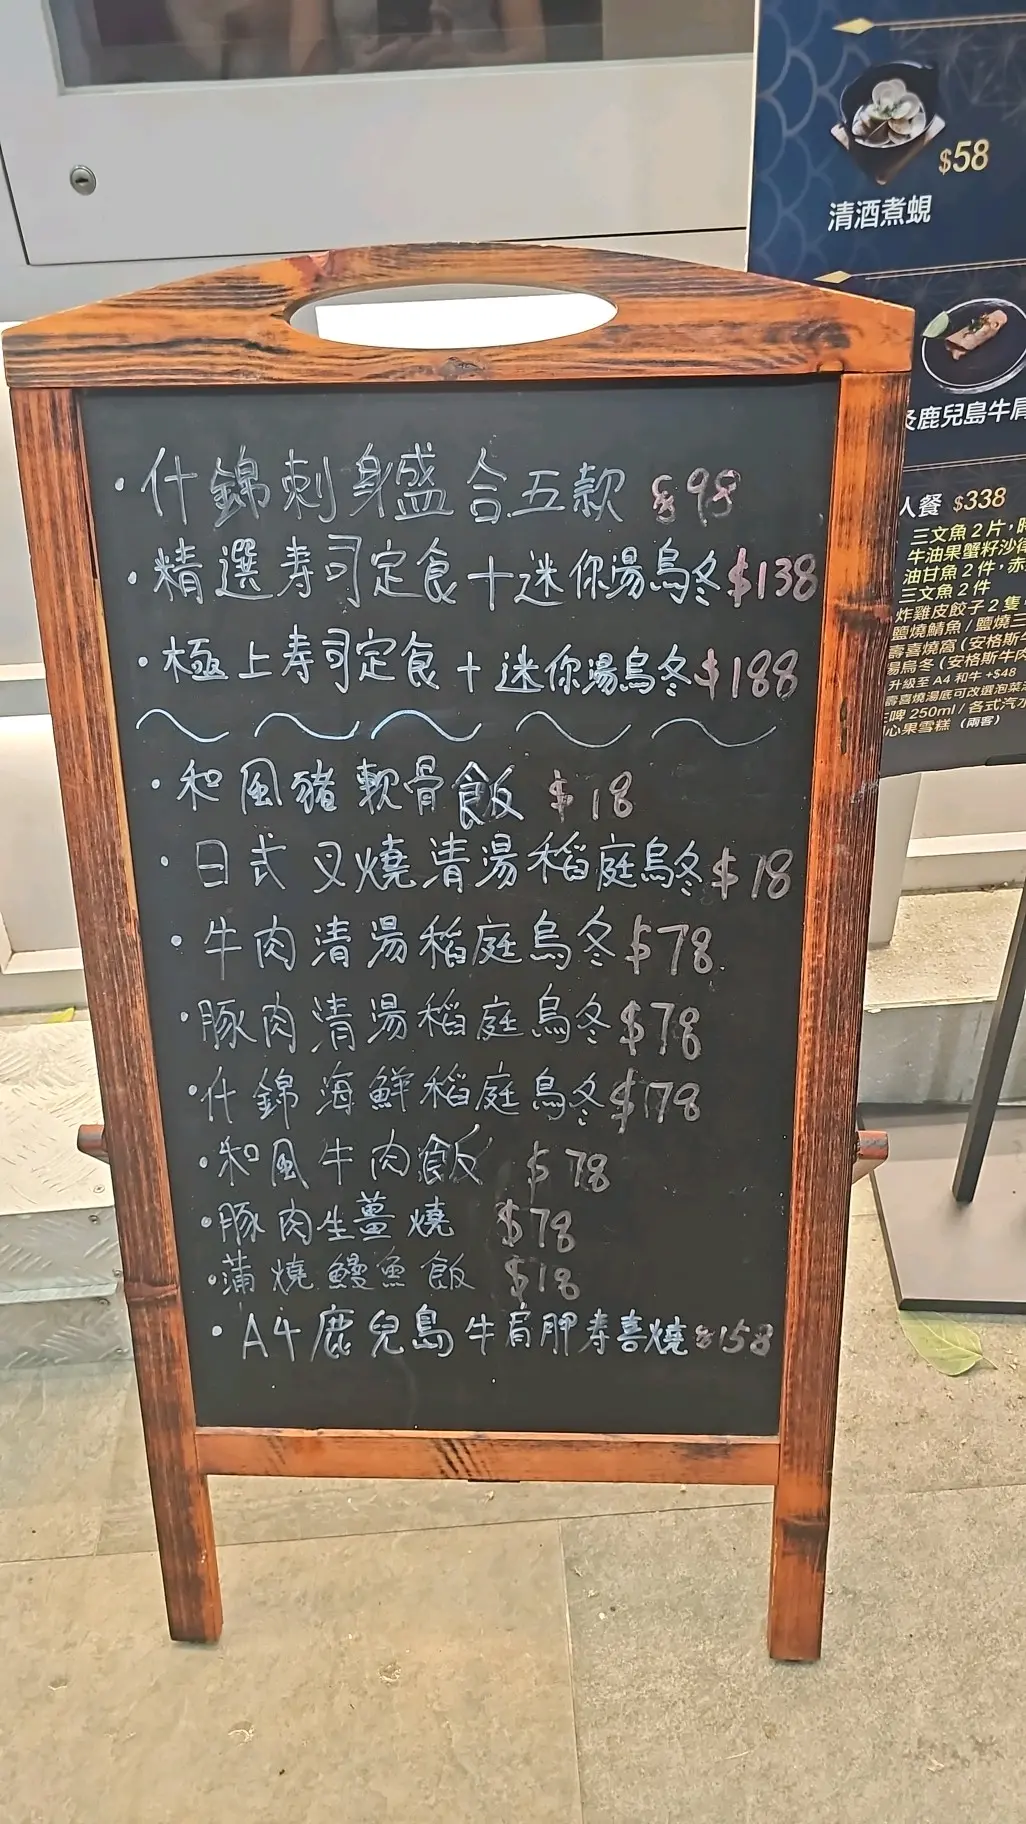 ・什錦刺身盛合五款 $98
・精選寿司定食+迷你湯烏冬$138
・極上寿司定食+迷你湯烏冬$188
・和風豬軟骨飯 $78
・日式叉燒清湯稻庭烏冬$78
・牛肉清湯稻庭烏冬$78
・豚肉清湯稻庭烏冬$78
・什錦海鮮稻庭烏冬$178
・和風牛肉飯 $78
・豚肉生薑燒 $78
・蒲燒鰻魚飯 $78
・A4鹿兒島牛肩胛寿喜燒$158
$58
清酒煮蜆
鹿兒島牛肩
人餐 $338
三文魚2片,
牛油果蟹籽沙律
油甘魚2件,赤
三文魚2件
炸雞皮餃子2隻
鹽燒鯖魚/鹽燒三
壽喜燒窩(安格斯牛
湯烏冬(安格斯牛肉
升級至A4和牛+$48
壽喜燒湯底可改選泡菜
啤250ml/各式汽水
心果雪糕(兩客)